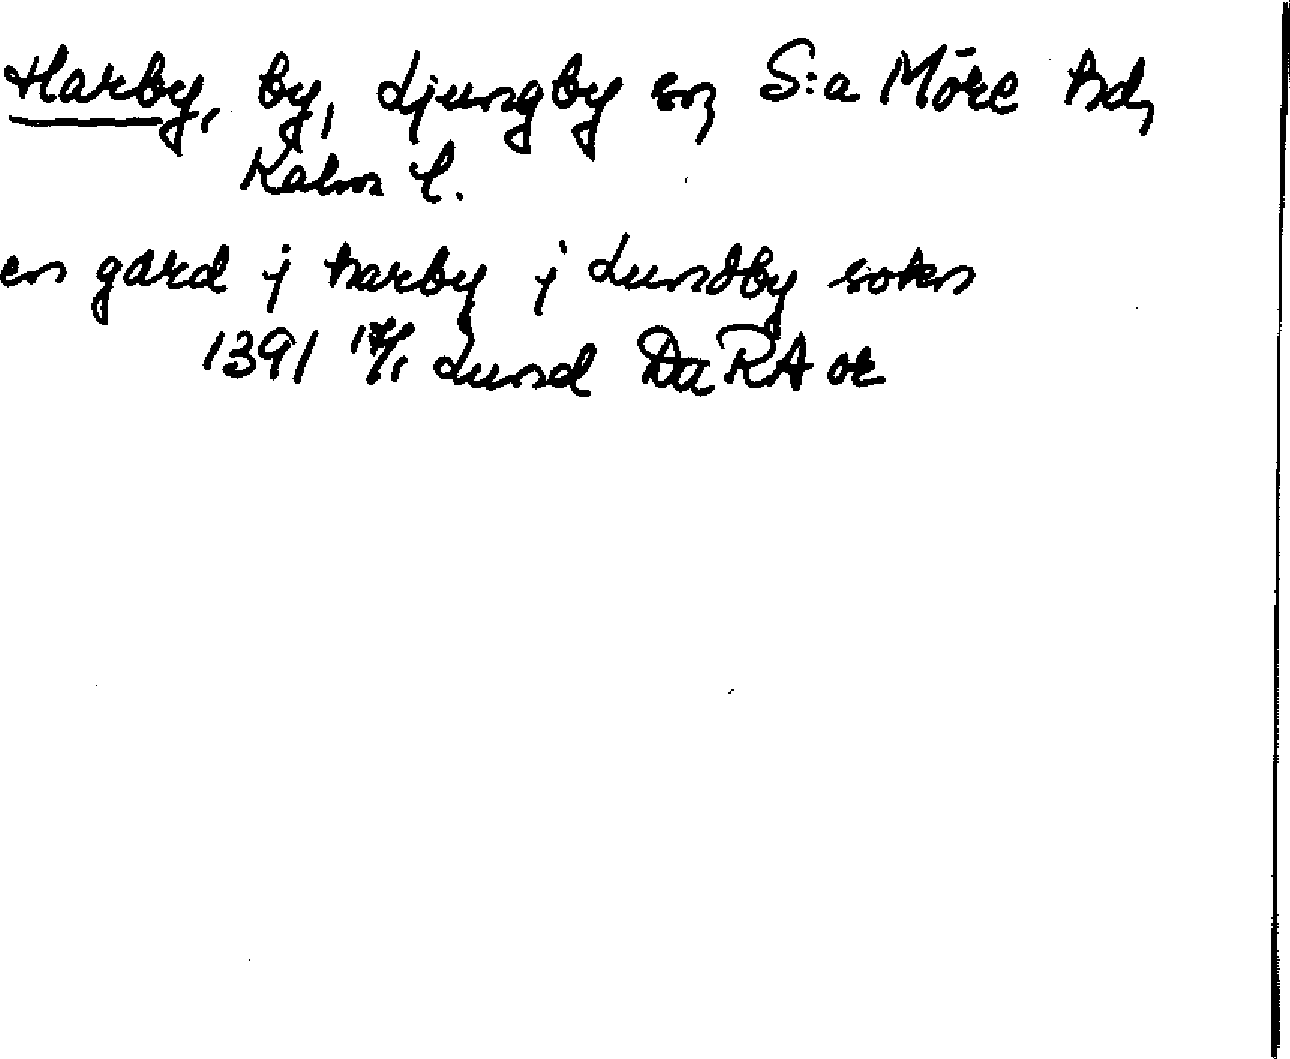 Harby, by, Ljungby sn, S:a Möre hd,
Kalm l.
en gard j harby j Lundby sokn
1391 Lund Da RA or